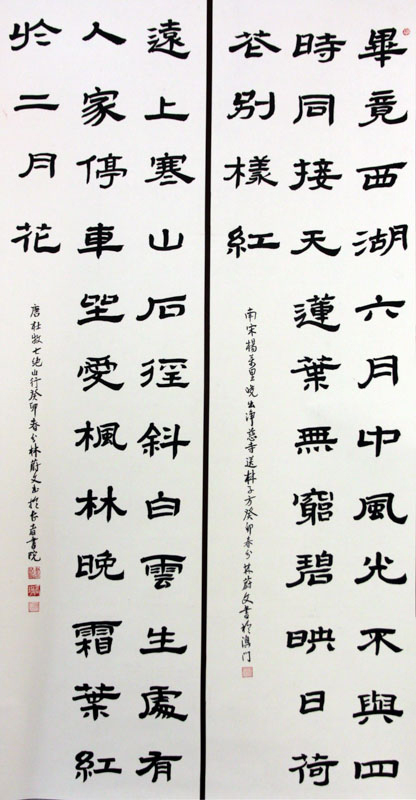 畢竟西湖六月中風光不與四
時同接天蓮葉無窮碧映日荷
花別樣紅
南宋楊萬里曉出淨慈寺送林子方癸卯春分林蔚文書於澳门
遠上寒山石徑斜白雲生處有
人家停車坐愛楓林晚霜葉紅
於二月花
唐杜牧七絶山行癸卯春分林蔚文書於書院